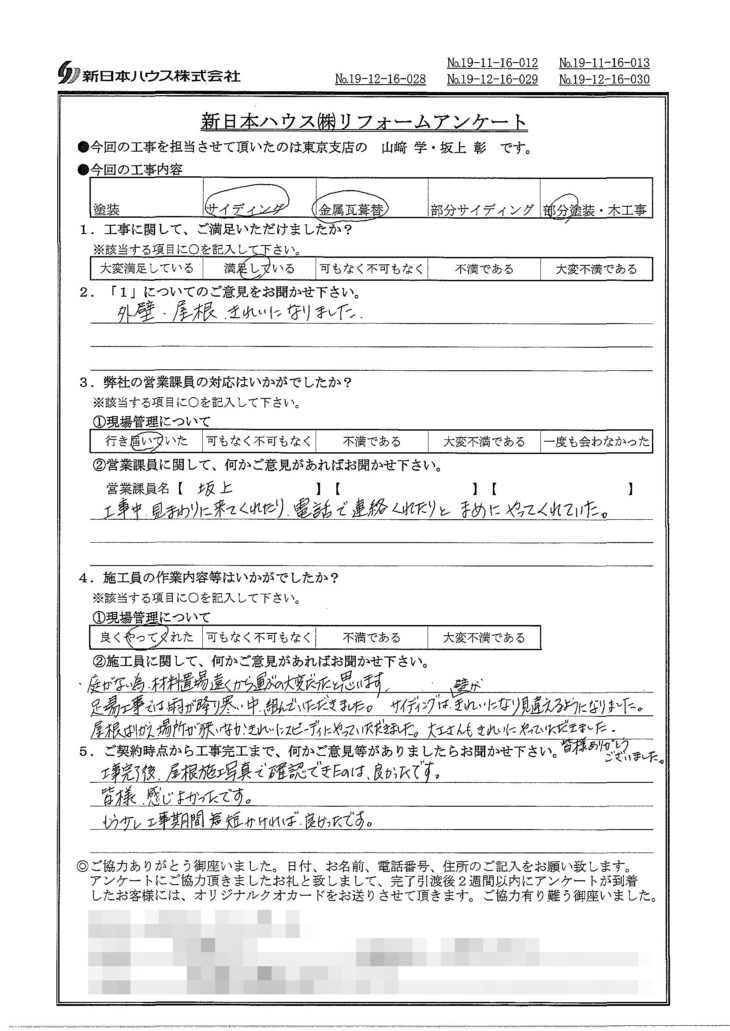 新日本ハウス株式会社
No.19-11-16-012 No.19-11-16-013
No.19-12-16-028 No.19-12-16-029 No.19-12-16-030
新日本ハウス㈱リフォームアンケート
●今回の工事を担当させて頂いたのは東京支店の 山﨑 学・坂上 彰 です。
●今回の工事内容
塗装 サイディング 金属瓦葺替 部分サイディング 部分塗装・木工事
1．工事に関して、ご満足いただけましたか？
※該当する項目に○を記入して下さい。
大変満足している 満足している 可もなく不可もなく 不満である 大変不満である
2．「1」についてのご意見をお聞かせ下さい。
外壁・屋根、きれいになりました。
3．弊社の営業課員の対応はいかがでしたか？
※該当する項目に○を記入して下さい。
①現場管理について
行き届いていた 可もなく不可もなく 不満である 大変不満である 一度も会わなかった
②営業課員に関して、何かご意見があればお聞かせ下さい。
営業課員名【 坂上 】【 】【 】
工事中、見まわりに来てくれたり、電話で連絡くれたりと まめにやってくれていた。
4．施工員の作業内容等はいかがでしたか？
※該当する項目に○を記入して下さい。
①現場管理について
良くやってくれた 可もなく不可もなく 不満である 大変不満である
②施工員に関して、何かご意見があればお聞かせ下さい。
・庭がない為、材料置場遠くから運ぶの大変だったと思います。
足場工事では雨が降り寒い中、組んでいただきました。 サイディングは、壁がきれいになり見違えるようになりました。
屋根はりかえ場所が狭いなかきれいにスピーディにやっていただきました。大工さんもきれいにやっていただきました。
皆様ありがとうございました。
5．ご契約時点から工事完工まで、何かご意見等がありましたらお聞かせ下さい。
工事完了後、屋根施工写真で確認できたのは、良かったです。
皆様、感じよかったです。
もう少し工事期間短かければ、良かったです。
◎ご協力ありがとう御座いました。日付、お名前、電話番号、住所のご記入をお願い致します。
アンケートにご協力頂きましたお礼と致しまして、完了引渡後２週間以内にアンケートが到着
したお客様には、オリジナルクオカードをお送りさせて頂きます。ご協力有り難う御座いました。